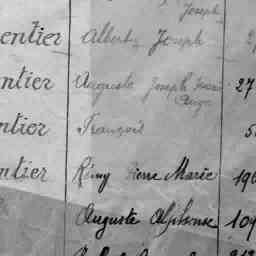 Joseph
entier Albert, Joseph
ntier Auguste Joseph Marie 27
Ange
ntier François 5
ntier Rémy Pierre Marie 196
Auguste Alphonse 109